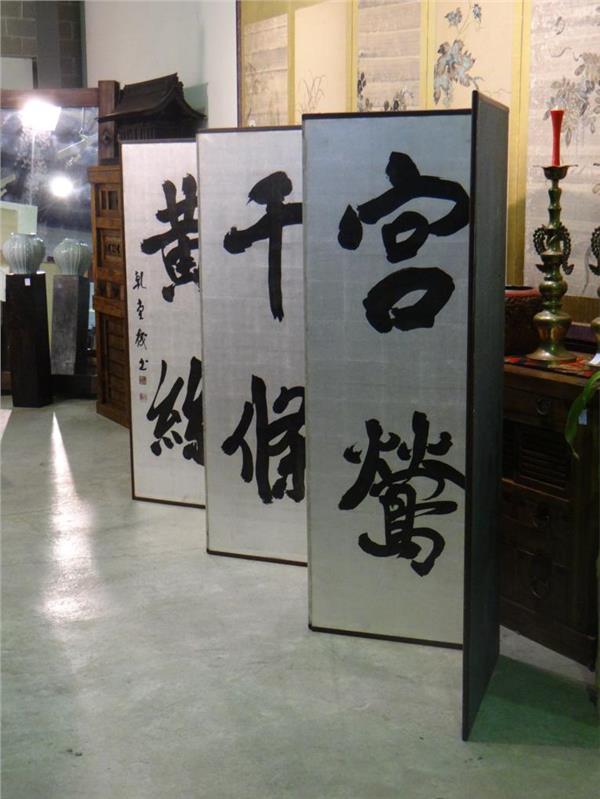 宮鶯
千條
黄絲